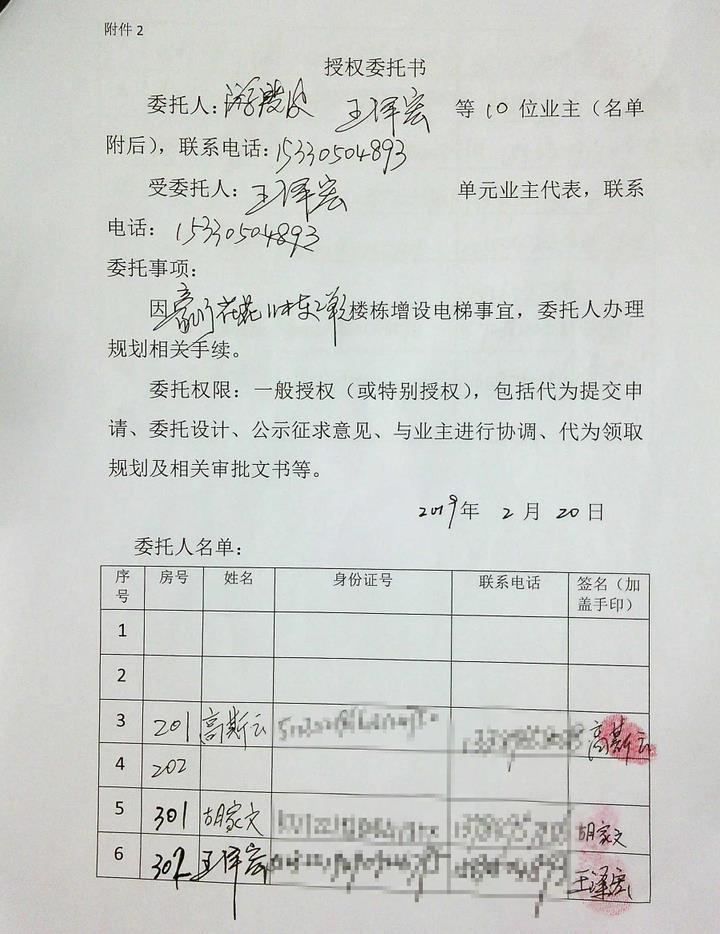 附件2
授权委托书
委托人: 王泽宏 等10位业主（名单
附后），联系电话:15330504893
受委托人: 王泽宏 单元业主代表，联系
电话: 15330504893
委托事项:
因 楼栋增设电梯事宜，委托人办理
规划相关手续。
委托权限: 一般授权（或特别授权），包括代为提交申
请、委托设计、公示征求意见、与业主进行协调、代为领取
规划及相关审批文书等。
2019年 2 月 20 日
委托人名单:
序号 房号 姓名 身份证号 联系电话 签名（加盖手印）
1
2
3 201 高斯云 高斯云
4 202
5 301 胡家文 胡家文
6 302 王泽宏 王泽宏